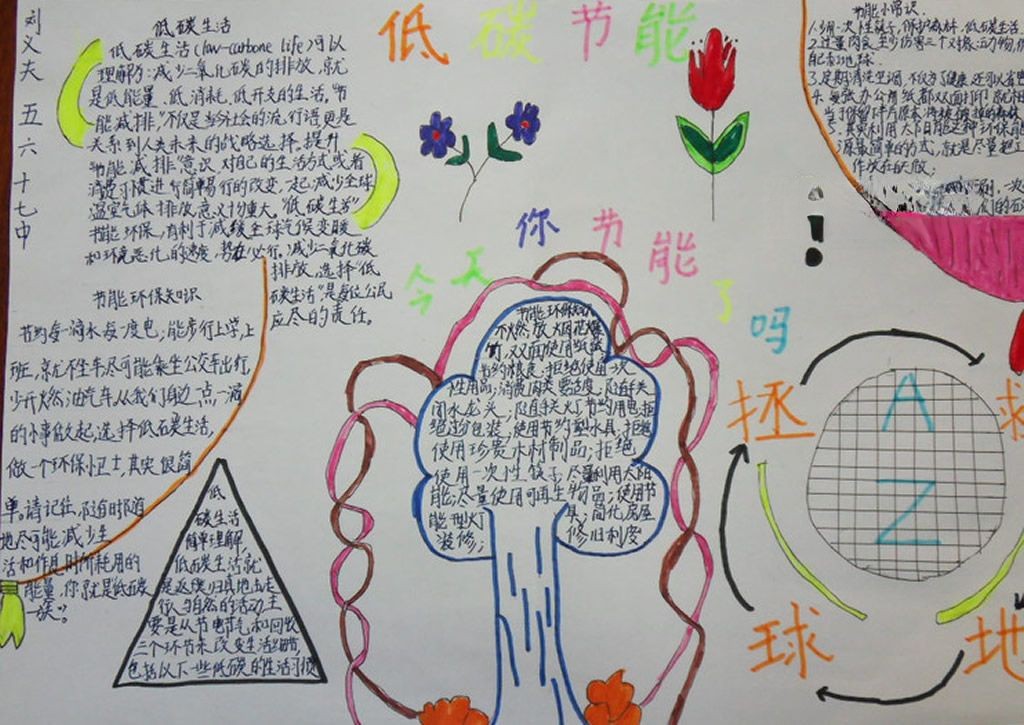 刘义夫 五六十七中
低碳节能
今天你节能了吗
低碳生活
低碳生活(low-carbone life)可以
理解为:减少二氧化碳的排放,就
是低能量、低消耗、低开支的生活。"节
能减排",不仅是当今社会的流行语,更是
关系到人类未来的战略选择。提升
"节能减排"意识,对自己的生活方式或者
消费习惯进行简单易行的改变,一起减少全球
温室气体排放意义十分重大。"低碳生活"
节能环保,有利于减缓全球气候变暖
和环境恶化的速度,势在必行。减少二氧化碳
排放,选择"低
碳生活"是每位公民
应尽的责任。
节能环保知识
节约每一滴水每一度电;能步行上学上
班,就不坐车尽可能乘坐公交车出行,
少开燃油汽车。从我们身边一点一滴
的小事做起,选择低碳生活,
做一个环保小卫士,其实很简
单。请记住,随时随
地尽可能减少生
活和作息时所耗用的
能量,你就是"低碳
一族"。
低
碳生活
简单理解,
低碳生活就
是返璞归真地去进
行人与自然的活动主
要是从节电节气和回收
三个环节来改变生活细节,
包括以下一些低碳的生活习惯
节能环保知识
不燃放烟花爆
竹,双面使用纸张
节约粮食,拒绝使用一次
性用品;消费肉类要适度,随手关
闭水龙头,随手关灯节约用电;拒
绝过分包装,使用节约型水具,拒绝
使用珍贵木材制品;拒绝
使用一次性筷子;尽量利用太阳
能;尽量使用可再生物品;使用节
能型灯具;简化房屋
装修;修旧利废
节能小常识
1.少用一次性筷子,保护森林,低碳生活
2.过量肉食至少伤害三个对象:动物,你
自己和地球.
3.定期清洗空调,不仅为了健康,还可以省
4.每张办公用纸都双面打印
5.其实利用太阳能这种环保能
源最简单的方式,就是尽量把工
作放在白天做;
拯救
地球
A
Z